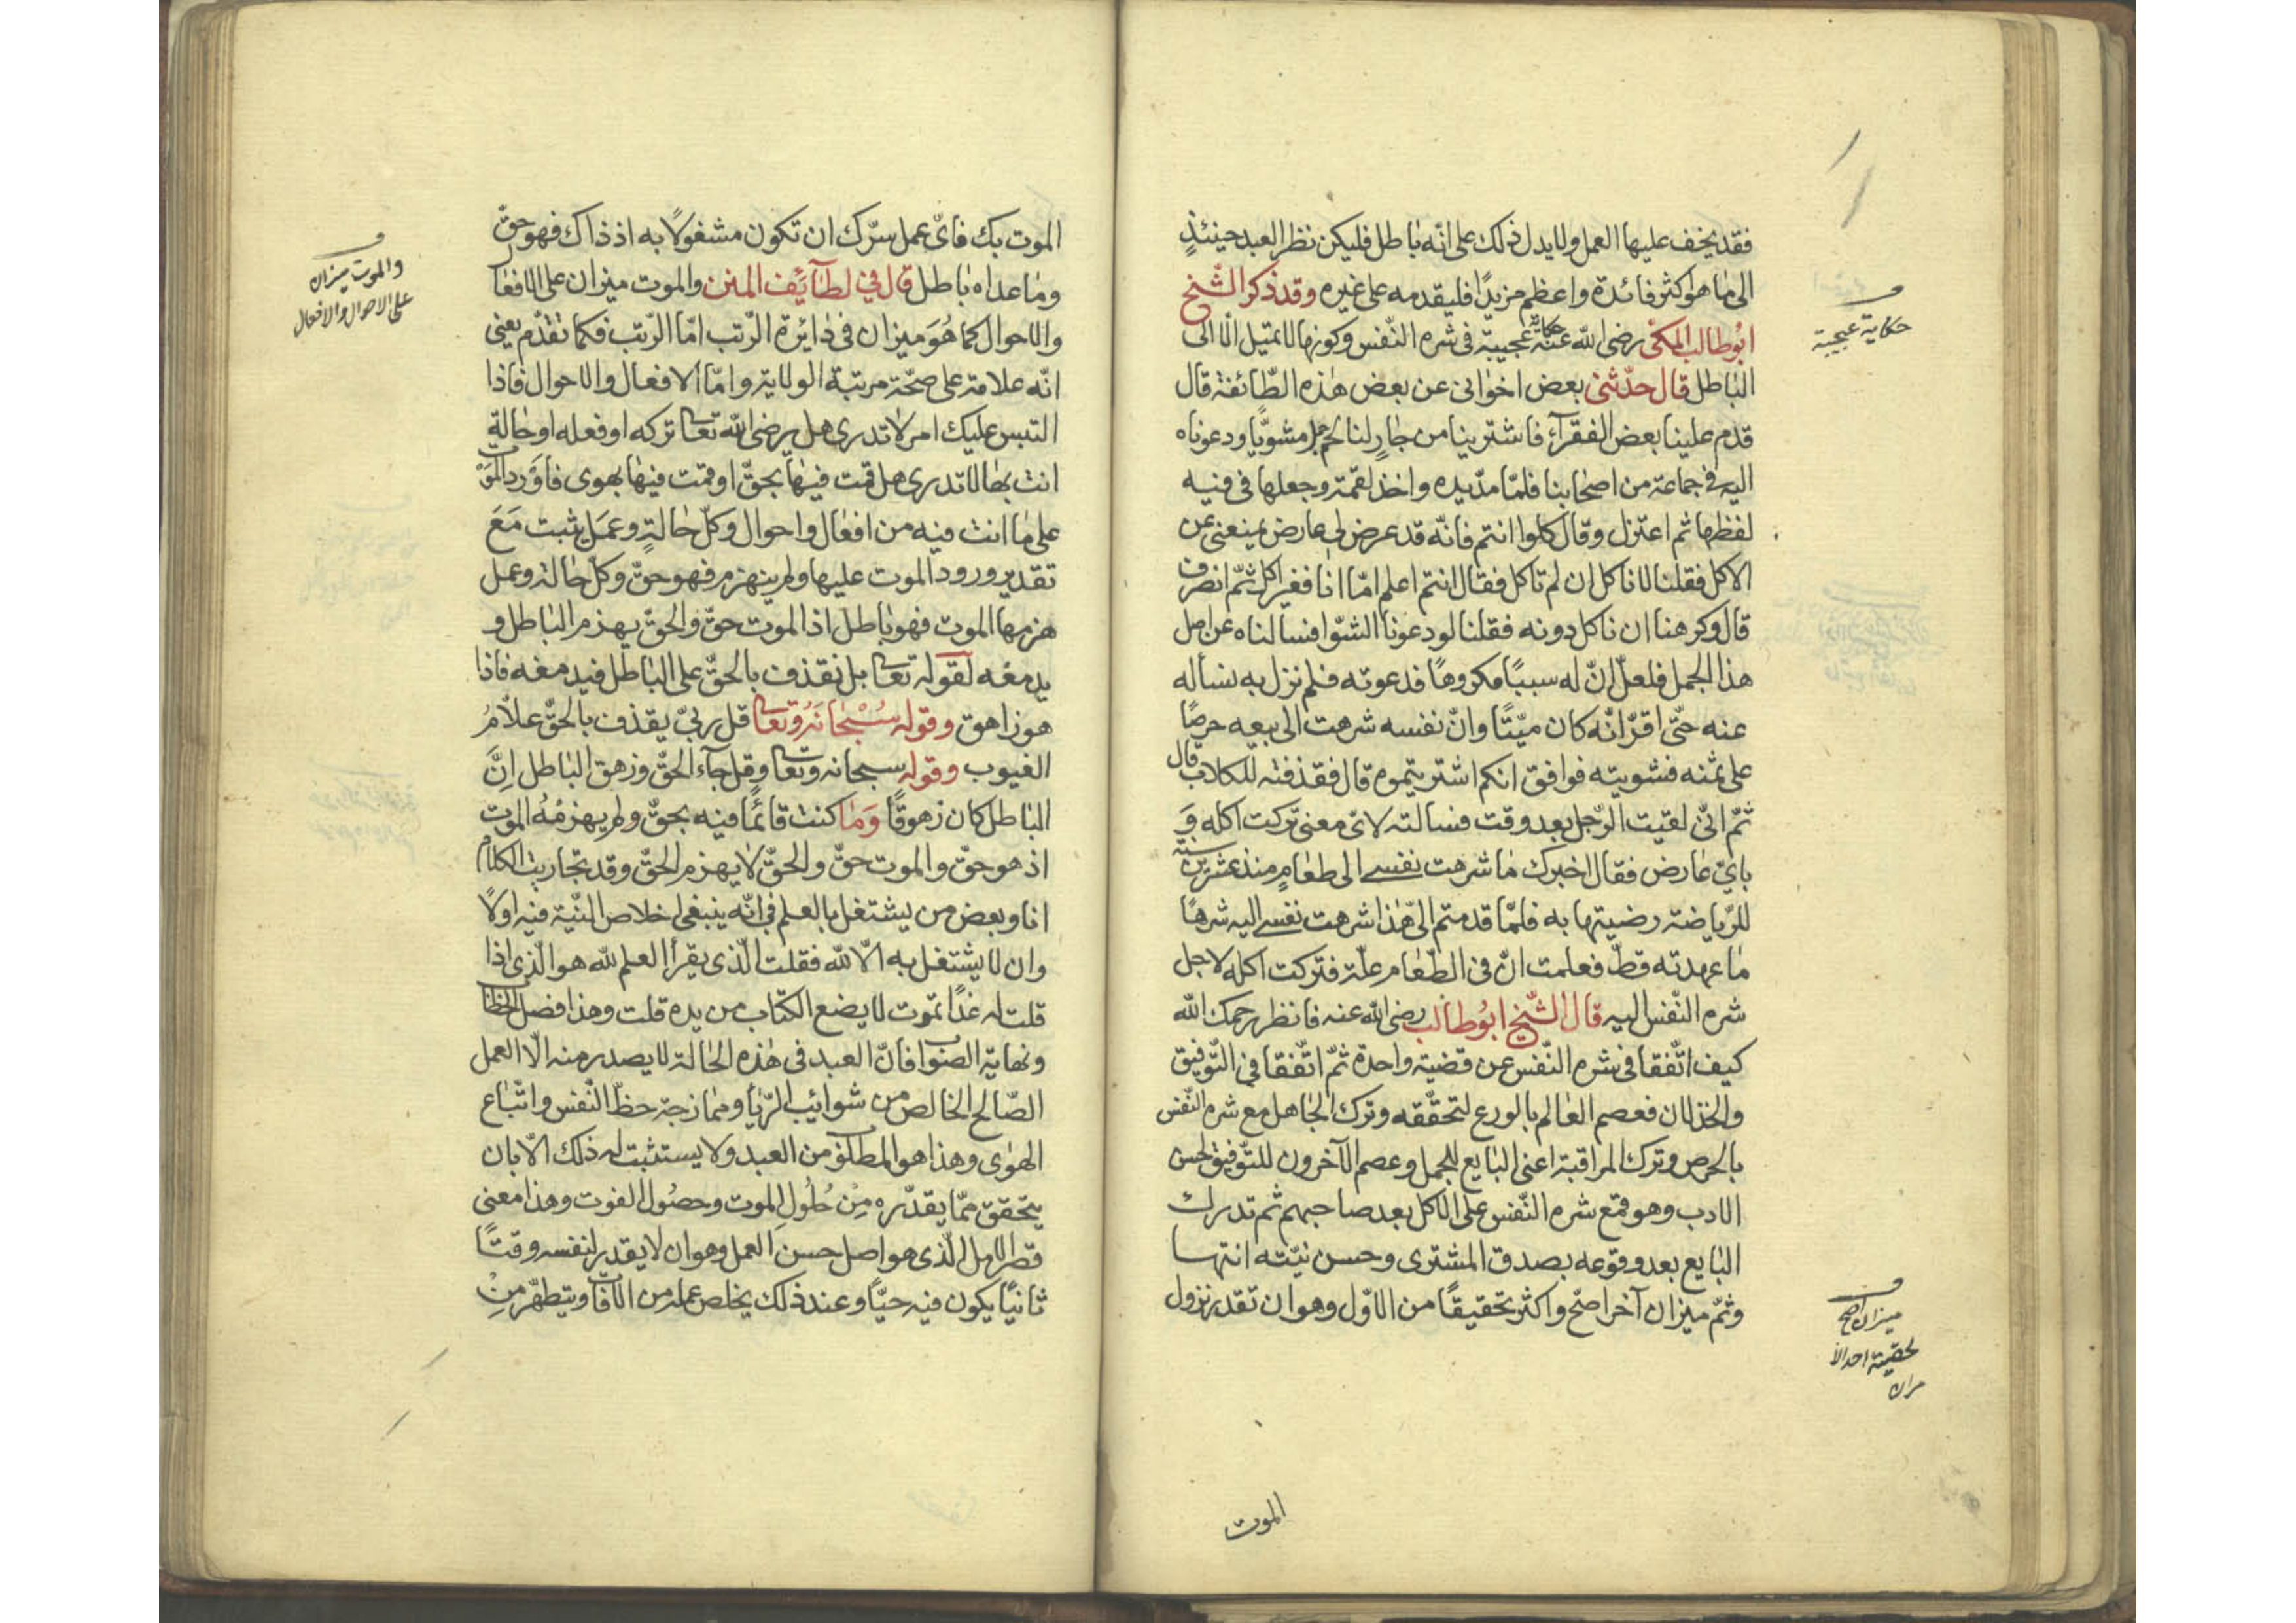 فقد يخف عليها العمل ولا يدل ذلك على انّه باطل فليكن نظر العبد حينئذٍ
الى ما هو اكثر فائدة واعظم مزيدًا فليقدمه على غيره وقد ذكر الشّيخ
ابُوطالب المكّى رضى اللّٰه عنه حكاية عجيبة فى شره النّفس وكونها لا تميل الّا الى
الباطل قال حدّثنى بعض اخوانى عن بعض هٰذه الطّائفة قال
قدم علينا بعض الفقرآء فاشترينا من جارٍ لنا جملا مشويًّا ودعوناه
اليه فى جماعة من اصحابنا فلمّا مدّ يده واخذ لقمة وجعلها فى فيه
لفظها ثم اعتزل وقال كلوا انتم فانّه قد عرض لى عارض يمنعنى عن
الاكل فقلنا لا ناكل ان لم تاكل فقال انتم اعلم امّا انا فغير اكل ثمّ انصرف
قال وكرهنا ان ناكل دونه فقلنا لو دعونا الشوّا فسالناه عن اصل
هذا الجمل فلعلّ انّ له سببًا مكروهًا فدعوته فلم نزل به نساله
عنه حتّى اقرّ انّه كان ميّتًا وانّ نفسه شرهت الى بيعه حرصًا
على ثمنه فشويته فوافق انكم اشتريتموه قال فقذفته للكلاب قال
ثمّ انّى لقيت الرّجل بعد وقت فسالته لاىّ معنى تركت اكله وَ
باىّ عارض فقال اخبرك ما شرهت نفسى الى طعامٍ منذ عشرين سنة
للرّياضة رضيتها به فلمّا قدمتم الىّ هٰذا شرهت نفسى اليه شرهًا
ما عهدته قطّ فعلمت انّ فى الطّعام علّة فتركت اكله لاجل
شره النّفس اليه قال الشّيخ ابُوطالب رضى اللّٰه عنه فانظر رحمك اللّٰه
كيف اتّفقا فى شره النّفس عن قضية واحدة ثمّ اتّفقا فى التّوفيق
والخذلان فعصم العالم بالورع لتحقّقه وترك الجاهل مع شره النّفس
بالحرص وترك المراقبة اعنى البايع للجمل وعصم الآخرون للتّوفيق لحسن
الادب وهو قمع شره النّفس على الاكل بعد صاحبهم ثم تدرك
البايع بعد وقوعه بصدق المشترى وحسن نيّته انتهـا
وثمّ ميزان آخر اصحّ واكثر تحقيقًا من الاوّل وهو ان تقدر نزول
الموت
حكاية عجيبة
ميزان اصح
الموت بك فاىّ عمل سرّك ان تكون مشغولًا به اذ ذاك فهو حقّ
وما عداه باطل قال في لطآئف المنن والموت ميزان على الافعال
والاحوال كما هُوَ ميزان فى دائرة الرّتب امّا الرّتب فكما تقدّم يعنى
انّه علامة على صحّة مرتبة الولاية وامّا الافعال والاحوال فاذا
التبس عليك امر لا تدرى هل يرضى اللّٰه تعا تركه او فعله او حالةٍ
انت بها لا تدرى هل قمت فيها بحقّ او قمت فيها بهوى فاَوْرد الموْت
على ما انت فيه من افعال واحوال وكلّ حالةٍ وعمَل يثبت مَعَ
تقدير ورود الموت عليها ولم ينهزم فهو حقّ وكلّ حالة وعمل
هزمها الموت فهو باطل اذ الموت حقّ والحقّ يهزم الباطل و
يدمغه لقوله تعا بل نقذف بالحقّ على الباطل فيدمغه فاذا
هو زاهق وقوله سُبْحانَهُ وتعا قل ربّى يقذف بالحقّ علاّمُ
الغيوب وقوله سبحانه وتعا وقل جآء الحقّ وزهق الباطل اِنَّ
الباطل كان زهوقًا وَمَا كنت قائمًا فيه بحقّ ولم يهزمْهُ الموت
اذ هو حقّ والموت حقّ والحقّ لا يهزم الحقّ وقد تجاريت الكلام
انا وبعض من يشتغل بالعلم فى انّه ينبغى اخلاص النّيّة فيه اولًا
وان لا يشتغل به الّا للّٰه فقلت الّذى يقرأ العلم للّٰه هو الّذى اذا
قلت له غدًا تموت لا يضع الكتاب من يده قلت وهذا فصل الخطاب
ونهاية الصواب فانّ العبد فى هٰذه الحالة لا يصدر منه الّا العمل
الصّالح الخالص من شوائب الرّيا وممازجة حظّ النّفس واتّباع
الهوٰى وهذا هو المطلوب من العبد ولا يستثبت له ذلك الّا بان
يتحقق ممّا يقدّره مِنْ حُلُولِ الموت وحصُول الفوت وهذا معنى
قصر الامل الّذى هو اصل حسن العمل وهو ان لا يقدير لنفسه وقتًا
ثانيًا يكون فيه حيًّا وعند ذلك يخلص عمله من الآفات ويتطهّر مِنْ
والموت ميزان
على الاحوال والافعال